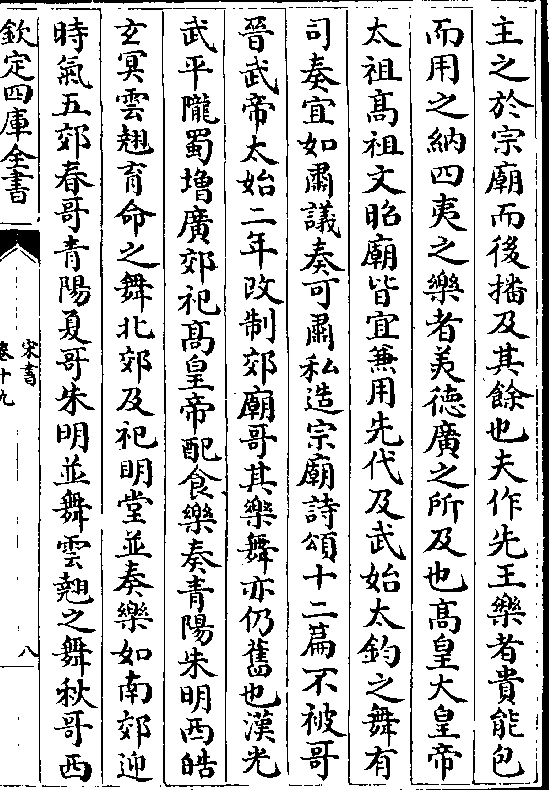 主之於宗廟而後播及其餘也夫作先王樂者貴能包
而用之納四夷之樂者美徳廣之所及也髙皇大皇帝
太祖髙祖文昭廟皆宜兼用先代及武始太鈞之舞有
司奏宜如肅議奏可肅私造宗廟詩頌十二篇不被哥
晉武帝太始二年改制郊廟哥其樂舞亦仍舊也漢光
武平隴蜀増廣郊祀髙皇帝配食樂奏青陽朱明西皓
𤣥冥雲翹育命之舞北郊及祀明堂並奏樂如南郊迎
時氣五郊春哥青陽夏哥朱明並舞雲翹之舞秋哥西
欽定四庫全書
宋書
卷十九
八